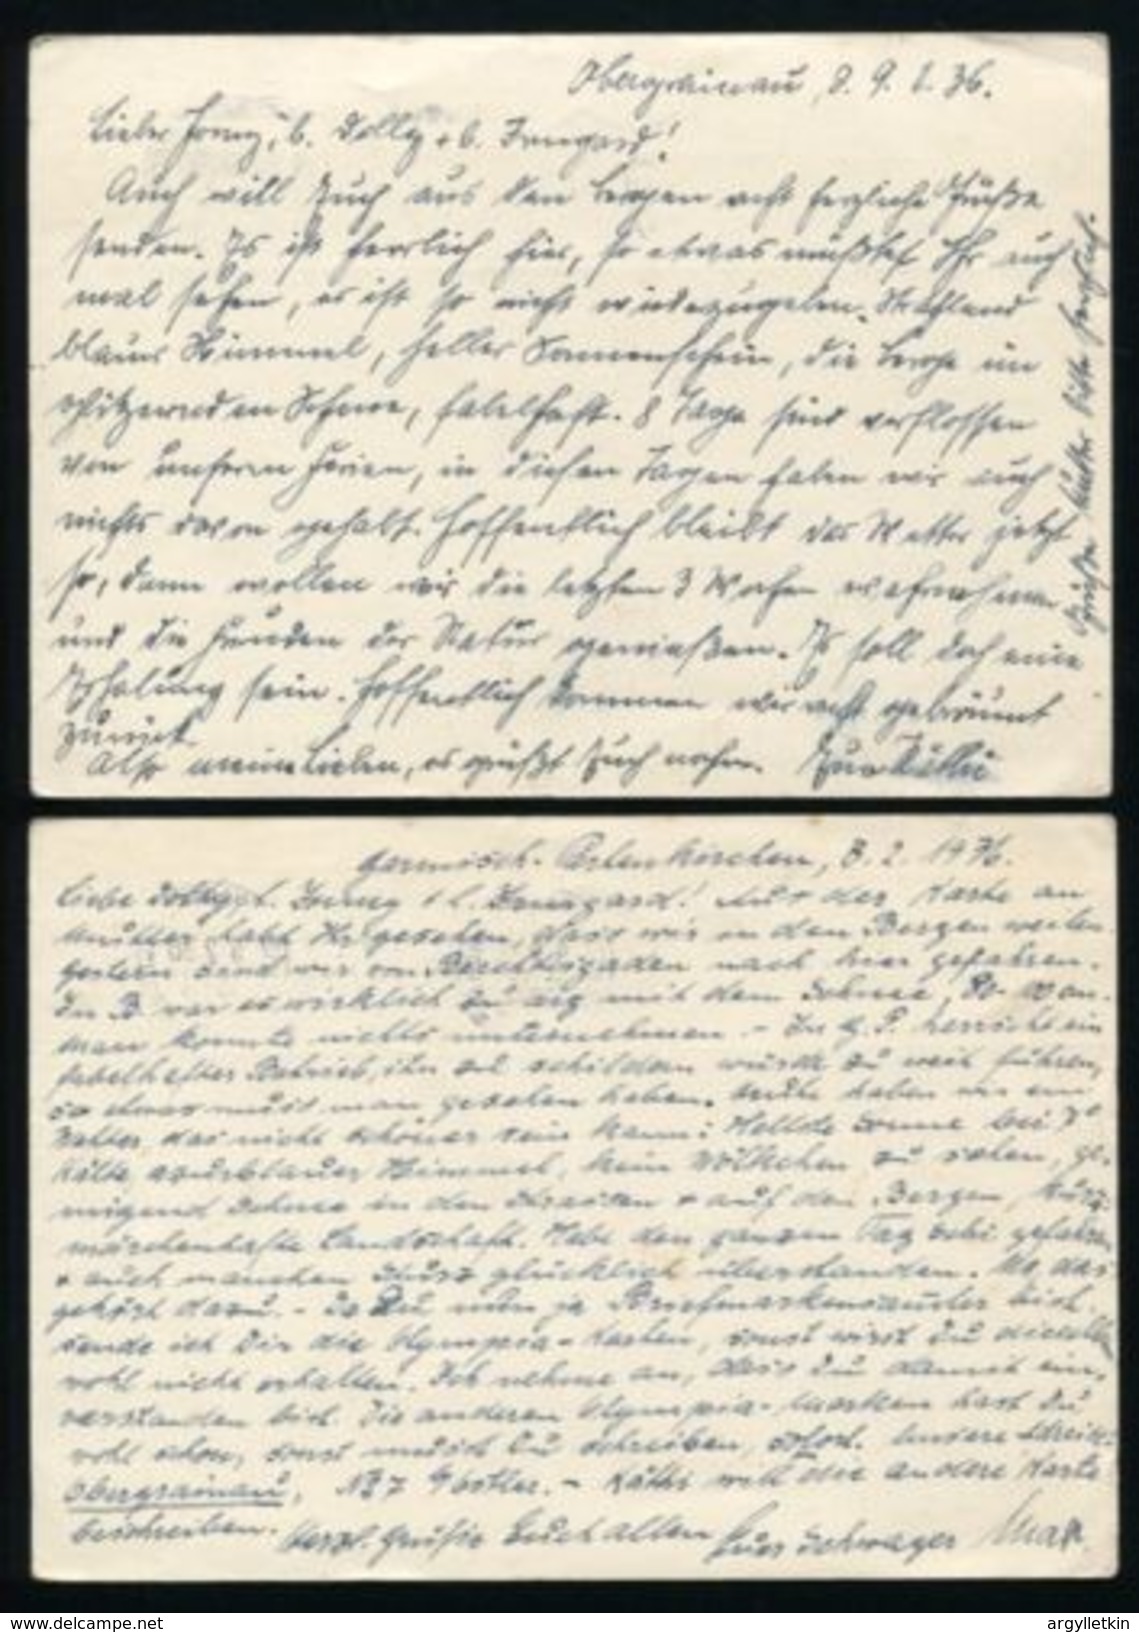 Obergrainau, d. 9.2.36.
Lieber Jonny, l. Dolly + l. Irmgard!
Auch will Euch aus den Bergen recht herzliche Grüße
senden. Es ist herrlich hier, so etwas müßtet Ihr auch
mal sehen, es ist so nicht wiederzugeben. Strahlend
blauer Himmel, heller Sonnenschein, die Berge im
glitzernden Schnee, fabelhaft. 8 Tage sind verflossen
von unseren Ferien, in diesen Tagen haben wir auch
nichts davon gehabt. Hoffentlich bleibt das Wetter jetzt
so, dann wollen wir die letzten 3 Wochen wahrnehmen
und die Freuden der Natur genießen. Es soll doch eine
Erholung sein. Hoffentlich kommen wir recht gebräunt
zurück.
Also meine Lieben, es grüßt Euch Eure Käthi
Grüße Mutter bitte herzlich.
Garmisch-Partenkirchen, 8.2.1936.
Liebe Dolly, l. Jonny + l. Irmgard! Aus der Karte an
Mutter habt Ihr gesehen, dass wir in den Bergen weilen.
Gestern sind wir von Berchtesgaden nach hier gefahren.
In B. war es wirklich zu arg mit dem Schnee, 80-100 cm.
Man konnte nichts unternehmen. - In G.P. herrscht ein
fabelhafter Betrieb, ihn zu schildern würde zu weit führen,
so etwas muss man gesehen haben. Heute haben wir ein
Wetter, das nicht schöner sein kann: Hellste Sonne bei 7°
Kälte, azurblauer Himmel, kein Wölkchen zu sehen, ge-
nügend Schnee in den Strassen + auf den Bergen, kurz:
märchenhafte Landschaft. Habe den ganzen Tag Ski gefahren
+ auch manchen Sturz glücklich überstanden. Na, das
gehört dazu. - Da Du nun ja Briefmarkensammler bist,
sende ich Dir die Olympia-Karten, sonst wirst Du dieselben
wohl nicht erhalten. Ich nehme an, dass Du damit ein-
verstanden bist. Die anderen Olympia-Marken hast Du
wohl schon, sonst musst Du schreiben, sofort. Unsere Adresse:
Obergrainau, No 7 Postler. - Käthi will die andere Karte
beschreiben. Herzl. Grüsse Euch allen Euer Schwager Max
www.delcampe.net
argylletkin